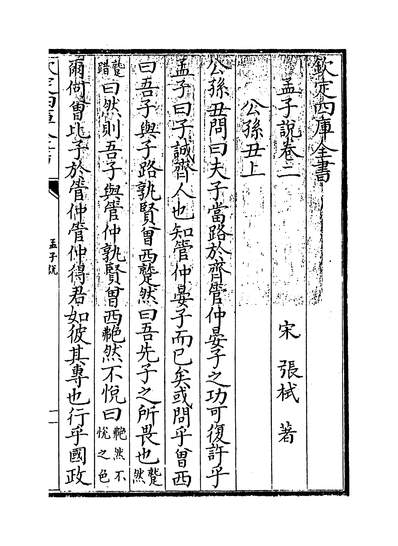 欽定四庫全書
孟子說卷二
宋 張栻 著
公孫丑上
公孫丑問曰夫子當路於齊管仲晏子之功可復許乎
孟子曰子誠齊人也知管仲晏子而已矣或問乎曾西
曰吾子與子路孰賢曾西蹵然曰吾先子之所畏也蹵然
蹵踖曰然則吾子與管仲孰賢曾西艴然不悅曰艴然不悅之色
爾何曾比予於管仲管仲得君如彼其專也行乎國政
孟子說